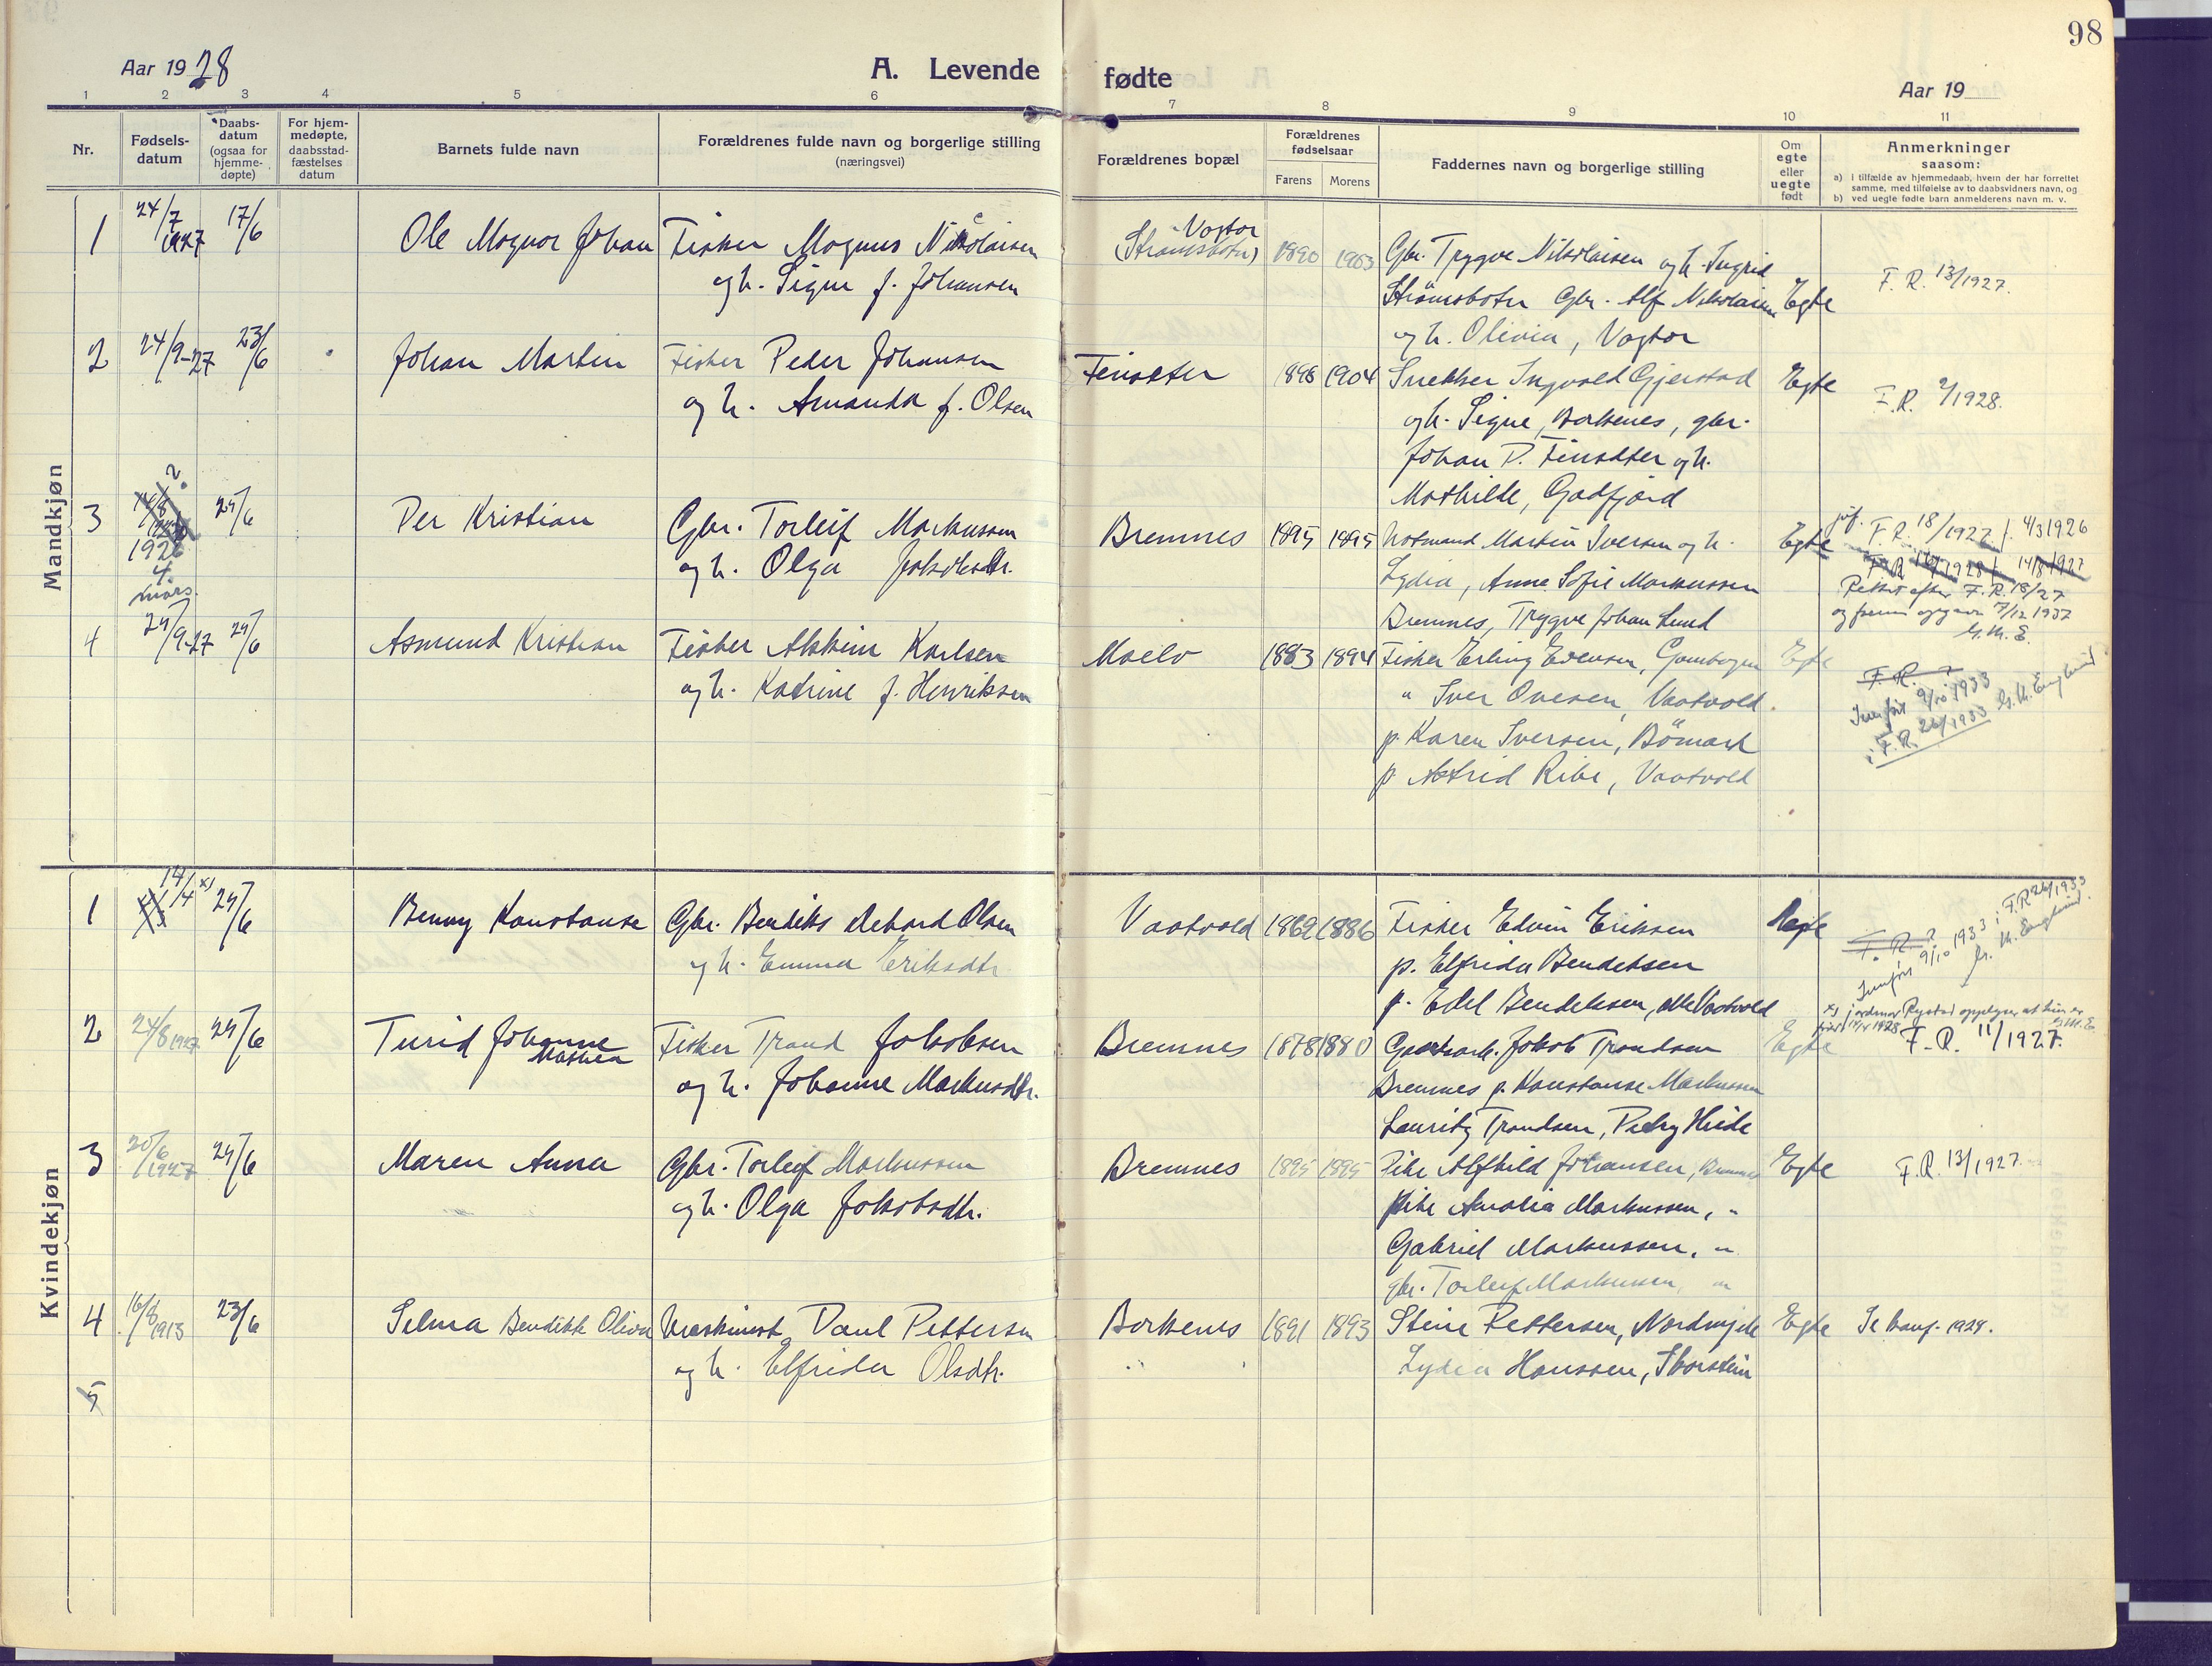 98
Aar 1928
A. Levende fødte
Aar 19
1 2 3 4 5 6 7 8 9 10 11
Nr.
Fødsels-
datum
Daabs-
datum
(ogsaa for
hjemme-
døpte)
For hjem-
medøpte,
daabsstad-
fæstelses
datum
Barnets fulde navn
Forældrenes fulde navn og borgerlige stilling
(næringsvei)
Forældrenes bopæl
Forældrenes
fødselsaar
Farens Morens
Faddernes navn og borgerlige stilling
Om
egte
eller
uegte
født
Anmerkninger
saasom:
a) i tilfælde av hjemmedaab, hvem der har forrettet
samme, med tilføielse av to daabsvidners navn, og
b) ved uegte fødte barn anmelderens navn m. v.
Mandkjøn
1 24/7 1927 17/6 Ole Magnor Johan Fisker Magnus Nikolaisen
og h. Signe f. Johansen
Vagtor
(Strømsbotn) 1890 1903 Gbr. Trygve Nikolaisen og h. Ingrid
Strømsbotn Gbr. Alf Nikolaisen Egte F. R. 13/1927.
og h. Olivia, Vagtor
2 24/9-27 23/6 Johan Martin Fisker Peder Johansen
og h. Amanda f. Olsen
Finsæter 1898 1904 Snekker Ingvald Gjerstad Egte F.R. 9/1928.
og h. Signe, Borkenes, gbr.
Johan P. Finsæter og h.
Mathilde, Gadfjord
3 1926 4. mars. 24/6 Per Kristian Gbr. Torleif Markussen
og h. Olga Jakobsdtr.
Bremnes 1895 1895 Notmand Martin Iversen og h. Egte jvf. F. R. 18/1927 4/3 1926
Lydia, Anne Sofie Markussen F.R. 1928 14/8 1927
Bremnes, Trygve Johan Lund Rettet efter F. R. 18/27
og 7/12 1937
G.M.E.
4 24/9-27 24/6 Asmund Kristian Fisker Karlsen
og h. Katrine f. Henriksen
Maelv 1883 1894 Fisker Erling Evensen, Egte F. R. ?
" Iver Ovesen, Vaatvold. Innført 9/10 1933
p. Karen Iversen, Bömark i F.R. 26/1933 G.M. Englund
p. Astrid Ribe, Vaatvold
Kvindekjøn
1 14/4 x) 24/6 Benny Konstanse Gbr. Bendiks Olsen
og h. Emma Eriksdtr.
Vaatvold 1869 1886 Fisker Edvin Eriksen F. R. ?
p. Elfrida Bendiksen Innført 9/10 1933 i F.R. 26/1933
p. Edel Bendiksen, alle Vaatvold G. M. Englund.
x) jordmor oppgir at hun er
født 14/4 1928 G.M.E.
2 24/8 1927 24/6 Turid Johanne
Mathea
Fisker Trond Jakobsen
og h. Johanne Markusdtr.
Bremnes 1878 1880 Jakob Trondsen Egte F. R. 11/1927.
Bremnes p. Konstanse Markussen
Lauritz Trondsen, Petry Heide
3 20/6 1927 24/6 Maren Anna Gbr. Torleif Markussen
og h. Olga Jakobsdtr.
Bremnes 1895 1895 Pike Alfhild Johansen, Bremnes Egte F.R. 13/1927.
Pike Amalia Markussen, "
Gabriel Markussen, "
gbr. Torleif Markussen, "
4 16/8 1913 23/6 Selma Bendikte Oliva Maskinist Paul Pettersen
og h. Elfrida Olsdtr.
Borkenes 1891 1893 Stine Pettersen, Nordmjele Egte Se konf. 1928.
Lydia Hanssen, Thorstein
5